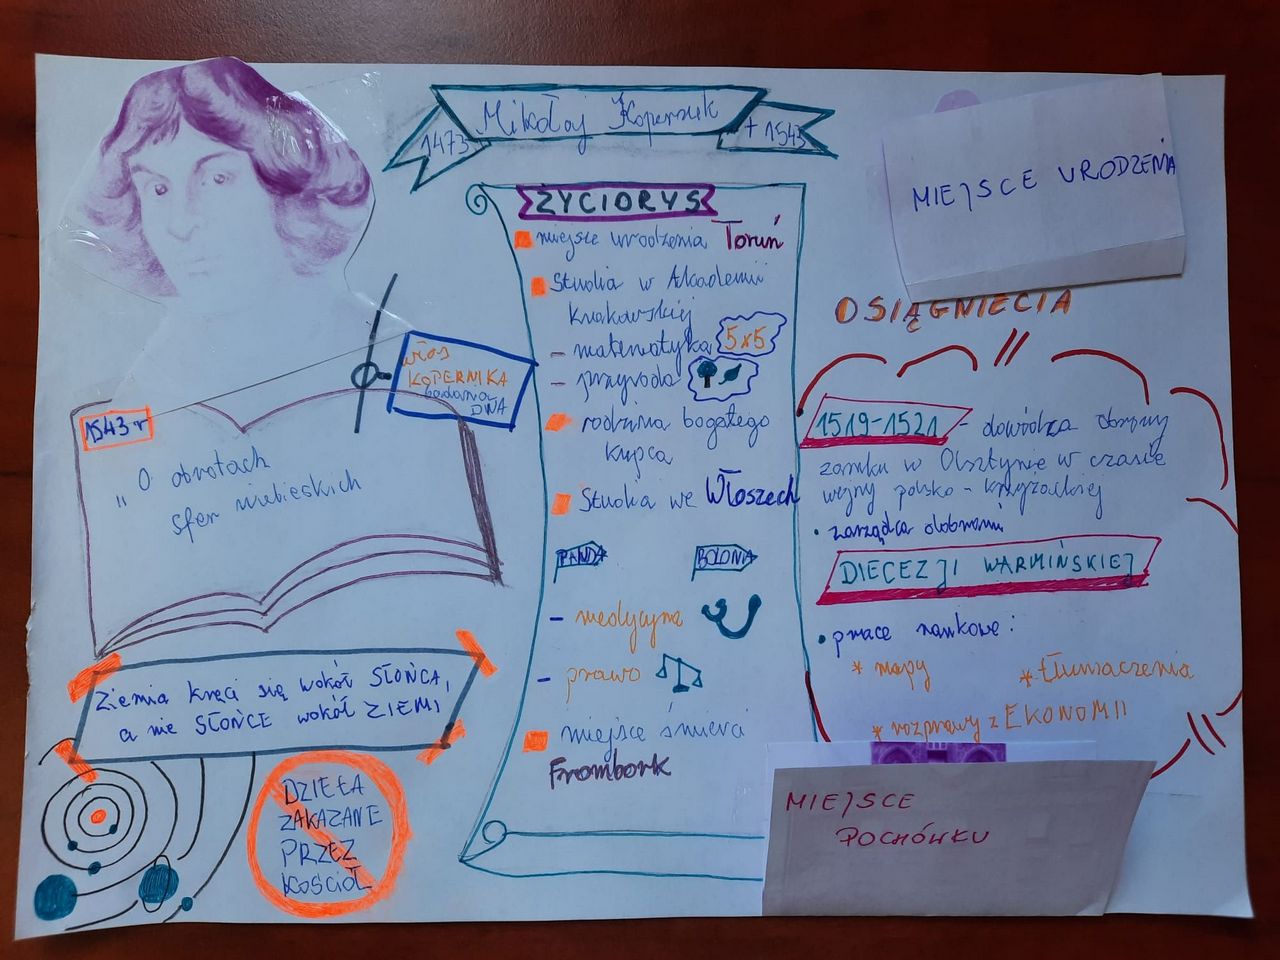 Mikołaj Kopernik
1473
+ 1543
ŻYCIORYS
miejsce urodzenia Toruń
Studia w Akademii
Krakowskiej
- matematyka 5x5
- przyroda
rodzina bogatego
kupca
Studia we Włoszech
PADWA
BOLONIA
- medycyna
- prawo
miejsce śmierci
Frombork
włos
KOPERNIKA
badania
DNA
1543 r
"O obrotach
sfer niebieskich
Ziemia kręci się wokół SŁOŃCA,
a nie SŁOŃCE wokół ZIEMI
DZIEŁA
ZAKAZANE
PRZEZ
KOŚCIÓŁ
MIEJSCE URODZENIA
OSIĄGNIĘCIA
1519-1521 - dowódza obrony
zamku w Olsztynie w czasie
wojny polsko - krzyżackiej
• zarządca dobrami
DIECEZJI WARMIŃSKIEJ
• prace naukowe:
* mapy
* tłumaczenia
* rozprawy z EKONOMII
MIEJSCE
POCHÓWKU